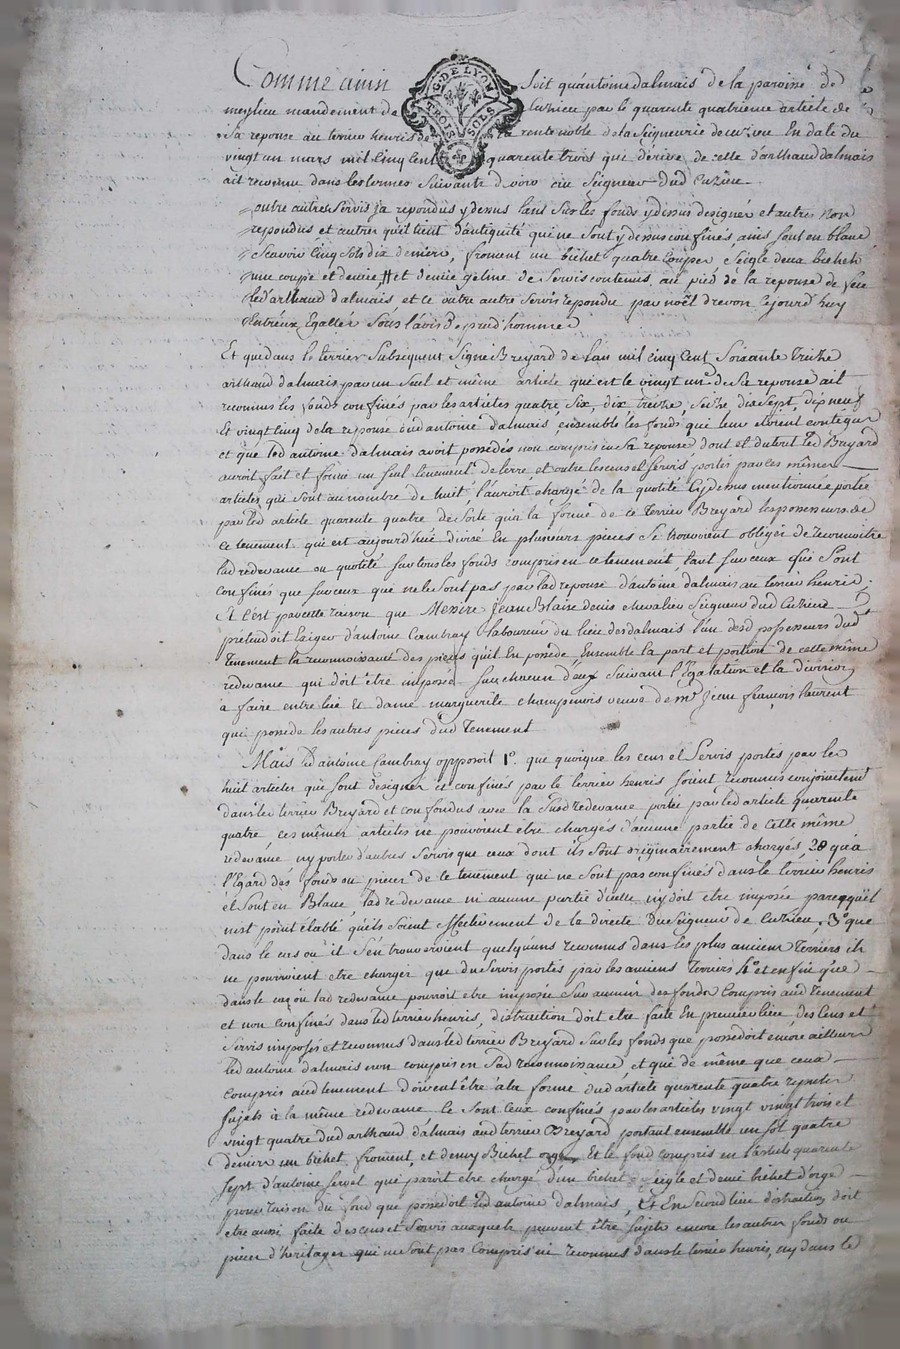 Comme ainsi soit qu'antoine dalmais de la paroisse de
meylieu mandement de Cuzieu par le quarente quatrieme article de
Sa reponse au terrier henris de la rente noble de la Seigneurie de cuzieu En date du
vingt un mars mil cinq Cent quarente trois que derive de celle d'arthaud dalmais
ait reconnu dans les termes Suivants devoir au Seigneur dud Cuzieu
outre autres Servis ja repondus y dessus tant Sur les fonds y dessus designés et autres non
repondus et autres qu'il tient d'antiquité qui ne Sont y dessus confinés, ains Sont en blanc
Scavoir Cinq Sols dix deniers, froment un bichet quatre Coupes Seigle deux bichets
une coupe et demie, et demie geline de Servis contenus au pied de la reponse de feu
led arthaud dalmais, et ce outre autre Servis repondu par noël drevon Cejourd'huy
Entreux Egallés Sous l'avis de prud'hommes
Et que dans le terrier Subsequent Signé Breyard de l'an mil cinq Cent Soixante Treize
arthaud dalmais par un Seul et même article qui est le vingt un.e de Sa reponse ait
reconnu les fonds confinés par les articles quatre, Six, dix treize, Seize, dix Sept, dix neuf
Et vingt Cinq de la reponse dud antoine dalmais, ensemble les fonds qui leur etoient contigus
et que led antoine dalmais avoit possedés non compris en sa reponse, dont et du tout led Breyard
auroit fait et formé un Seul tenement de terre, et outre les cens et Servis portés par les mêmes
articles qui Sont au nombre de huit l'auroit chargé de la quotité Cy dessus mentionnée portée
par led article quarente quatre de Sorte qu'a la forme de ce Terrier Breyard les possesseurs de
ce tenement qui est aujourd'hui divisé En plusieurs pieces Se trouvoient obligés de reconnoitre
lad redevance ou quotité sur tous les fonds compris en ce tenement tant sur ceux qui Sont
confinés que sur ceux qui ne le Sont pas par lad reponse d'antoine dalmais au terrier henris.
Et c'est par cette raison que Messire Jean Blaise denis chevalier Seigneur dud Cuzieu
pretendoit Exiger d'antoine Cambray laboureur du lieu des dalmais l'un desd possesseurs dud
Tenement la reconnoissance des pieces qu'il En possede Ensemble la part et portion de cette même
redevance qui doit être imposée Sur chacun d'eux Suivant l'Egalation et la division
à faire entre lui Et dame marguerite champinois veuve de mr Jean françois laurent
qui possede les autres pieces dud Tenement
Mais led antoine Cambray opposoit 1o. que quoique les cens et Servis portés par les
huit articles qui Sont designés et confinés par le terrier henris soient reconnus conjointement
dans led terrier Breyard et confondus avec la Susd redevance portée par led article quarente
quatre, ces mêmes articles ne pouvoient être chargés d'aucune partie de cette même
redevance ny portés d'autres Servis que ceux dont ils Sont originairement chargés, 2o qu'à
l'Egard des fonds ou pieces de ce tenement qui ne Sont pas confinés dans le terrier henris
et Sont en Blanc, lad redevance ni aucune partie d'icelle n'y doit etre imposée parcequ'il
n'est point établi qu'ils soient effectivement de la directe du Seigneur de Cuzieu, 3o que
dans le cas ou il s'en trouveroient quelqu'uns reconnus dans les plus anciens Terriers ils
ne pourroient etre chargés que du Servis portés par les anciens Terriers 4o et enfin que
dans le cas ou lad redevance pourroit etre imposée Sur aucuns des fonds Compris aud Tenement
et non confinés dans led terrier henris, distraction doit etre faite En premier lieu des Cens et
Servis imposés et reconnus dans led terrier Breyard Sur les fonds que possedoit encore ailleurs
led antoine dalmais non compris en Sad reconnoissance, et que de même que ceux
compris aud tenement doivent être à la forme dud article quarente quatre reputés
Sujets à la même redevance le Sont ceux confinés par les articles vingt vingt trois et
vingt quatre dud arthaud dalmais aud terrier Breyard portant ensemble un sol quatre
deniers un bichet froment, et demy Bichet orge Et le fond compris en l'article quarente
Sept d'antoine qui paroit etre chargé d'un bichet Seigle et demi bichet d'orge
pour raison du fond que possedoit led antoine dalmais, Et En Second lieu distraction doit
etre aussi faite des cens et Servis auxquels peuvent être Sujets encore les autres fonds ou
pieces d'heritages qui ne Sont pas Compris ni reconnus dans le terrier henris, ny dans le
G. DE LYON
TROIS SOLS